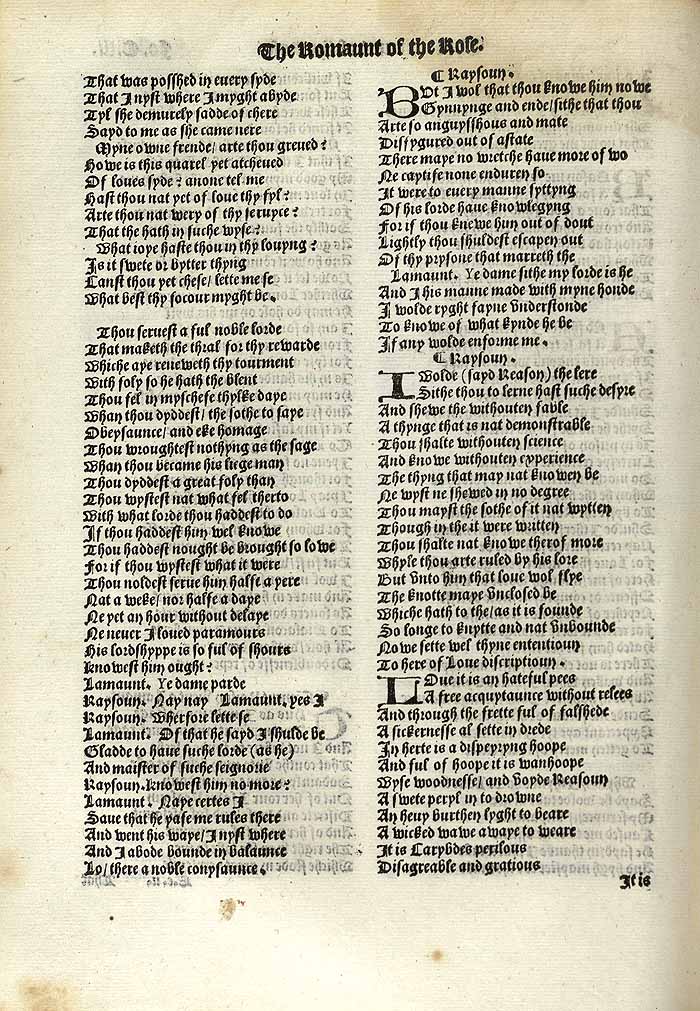 The Romaunt of the Rose.
That was posshed in euery syde
That I nyst where I myght abyde
Tyl she demurely sadde of chere
Sayd to me as she came nere
Myne owne frende/ arte thou greued?
Howe is this quarel yet atcheued
Of loues syde? anone tel me
Hast thou nat yet of loue thy fyl?
Arte thou nat wery of thy seruyce?
That the hath in suche wyse?
What ioye haste thou in thy louyng?
Is it swete or bytter thyng
Canst thou yet chese/ lette me se
What best thy socour myght be.
Thou seruest a ful noble lorde
That maketh the thral for thy rewarde
Whiche aye reneweth thy tourment
With foly so he hath the blent
Thou fel in myschefe thylke daye
Whan thou dyddest/ the sothe to saye
Obeysaunce/ and eke homage
Thou wroughtest nothyng as the sage
Whan thou became his liege man
Thou dyddest a great foly than
Thou wystest nat what fel therto
With what lorde thou haddest to do
If thou haddest him wel knowe
Thou haddest nought be brought so lowe
For if thou wystest what it were
Thou noldest serue him halfe a yere
Nat a weke/ nor halfe a daye
Ne yet an hour without delaye
Ne neuer I loued paramours
His lordshyppe is so ful of shours
knowest him ought?
Lamaunt. Ye dame parde
Raysoun. Nay nay Lamaunt. yes I
Raysoun. Wherfore lette se
Lamaunt. Of that he sayd I shulde be
Gladde to haue suche lorde (as he)
And maister of suche seignorie
Raysoun. knowest him no more?
Lamaunt. Naye certes I
Saue that he yafe me rules there
And went his waye/ I nyst where
And I abode bounde in balaunce
Lo/ there a noble conysaunce.
¶ Raysoun.
BUt I wol that thou knowe him nowe
Gynnynge and ende/ sithe that thou
Arte so anguysshous and mate
Disfygured out of astate
There maye no wretche haue more of wo
Ne caytife none enduren so
It were to euery manne syttyng
Of his lorde haue knowlegyng
For if thou knewe him out of dout
Lightly thou shuldest escapen out
Of thy prysone that marreth the
Lamaunt. Ye dame sithe my lorde is he
And I his manne made with myne honde
I wolde ryght fayne vnderstonde
To knowe of what kynde he be
If any wolde enforme me.
¶ Raysoun.
I Wolde (sayd Reason) the lere
Sithe thou to lerne hast suche desyre
And shewe the withouten fable
A thynge that is nat demonstrable
Thou shalte withouten science
And knowe withouten experience
The thyng that may nat knowen be
Ne wyst ne shewed in no degree
Thou mayst the sothe of it nat wytten
Though in the it were written
Thou shalte nat knowe therof more
Whyle thou arte ruled by his lore
But vnto him that loue wol flye
The knotte maye vnclosed be
Whiche hath to the/ as it is founde
So longe to knytte and nat vnbounde
Nowe sette wel thyne ententioun
To here of Loue discriptioun.
LOue it is an hateful pees
A free acquytaunce without relees
And through the frette ful of falshede
A sickernesse al sette in drede
In herte is a dispeyryng hoope
And ful of hoope it is wanhoope
Wyse woodnesse/ and voyde Reasoun
A swete peryl in to drowne
An heuy burthen lyght to beare
A wicked wawe awaye to weare
It is Carybdes perilous
Disagreable and gratious
It is